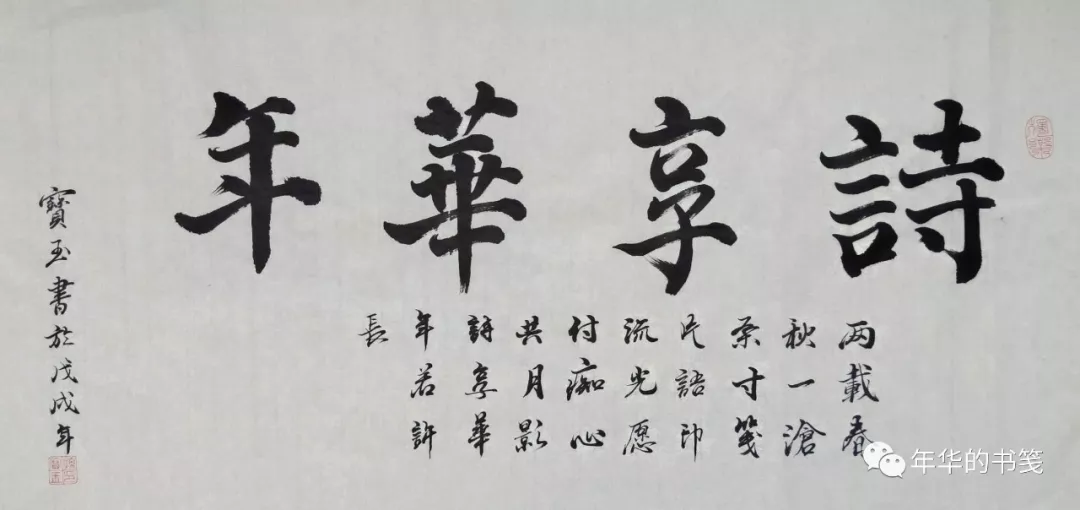 詩享華年
两載春
秋一滄
桑寸箋
片語印
流光愿
付痴心
共月影
詩享華
年若許
長
寶玉書於戊戌年
年华的书笺